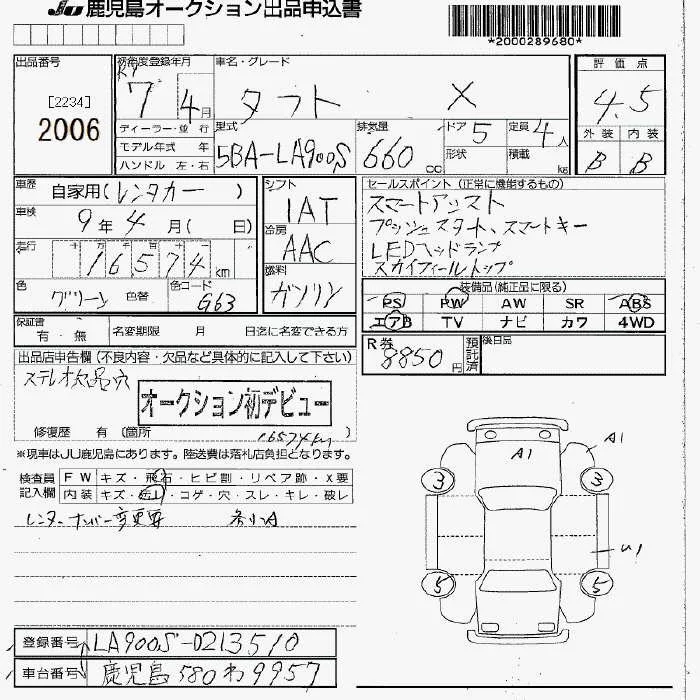 JU 鹿児島オークション出品申込書
*2000289680*
出品番号
[2234]
2006
初年度登録年月
R7
7 4月
ディーラー・並 行
モデル年式 年
ハンドル 左・右
車名・グレード
タフト X
型式
5BA-LA900S
排気量
660 cc
ドア 5
形状
定員 4人
積載 kg
評価点
4.5
外装 内装
B B
車歴
自家用(レンタカー)
車検
9年 4月( 日)
走行
十 万 千 百 十 一
16574 km
色
グリーン 色替
色コード
G63
シフト
IAT
冷房
AAC
燃料
ガソリン
セールスポイント (正常に機能するもの)
スマートアシスト
プッシュスタート、スマートキー
LEDヘッドランプ
スカイフィールトップ
装備品(純正品に限る)
PS PW AW SR ABS
エアB TV ナビ カワ 4WD
保証書
有・無
名変期限 月 日迄に名変できる方
R券
8850円
預託済
後日品
出品店申告欄(不良内容・欠品など具体的に記入して下さい)
ステレオ欠品穴
オークション初デビュー
修復歴 有 (箇所
16574km
※現車はJU鹿児島にあります。陸送費は落札店負担となります。
検査員
記入欄
FW キズ・飛石・ヒビ割・リペア跡・X要
内装 キズ・・コゲ・穴・スレ・キレ・破レ
レンターナンバー変更要
A1
A1
3 3
U1
5 5
登録番号 LA900S-0213510
車台番号 鹿児島 580 わ 9957